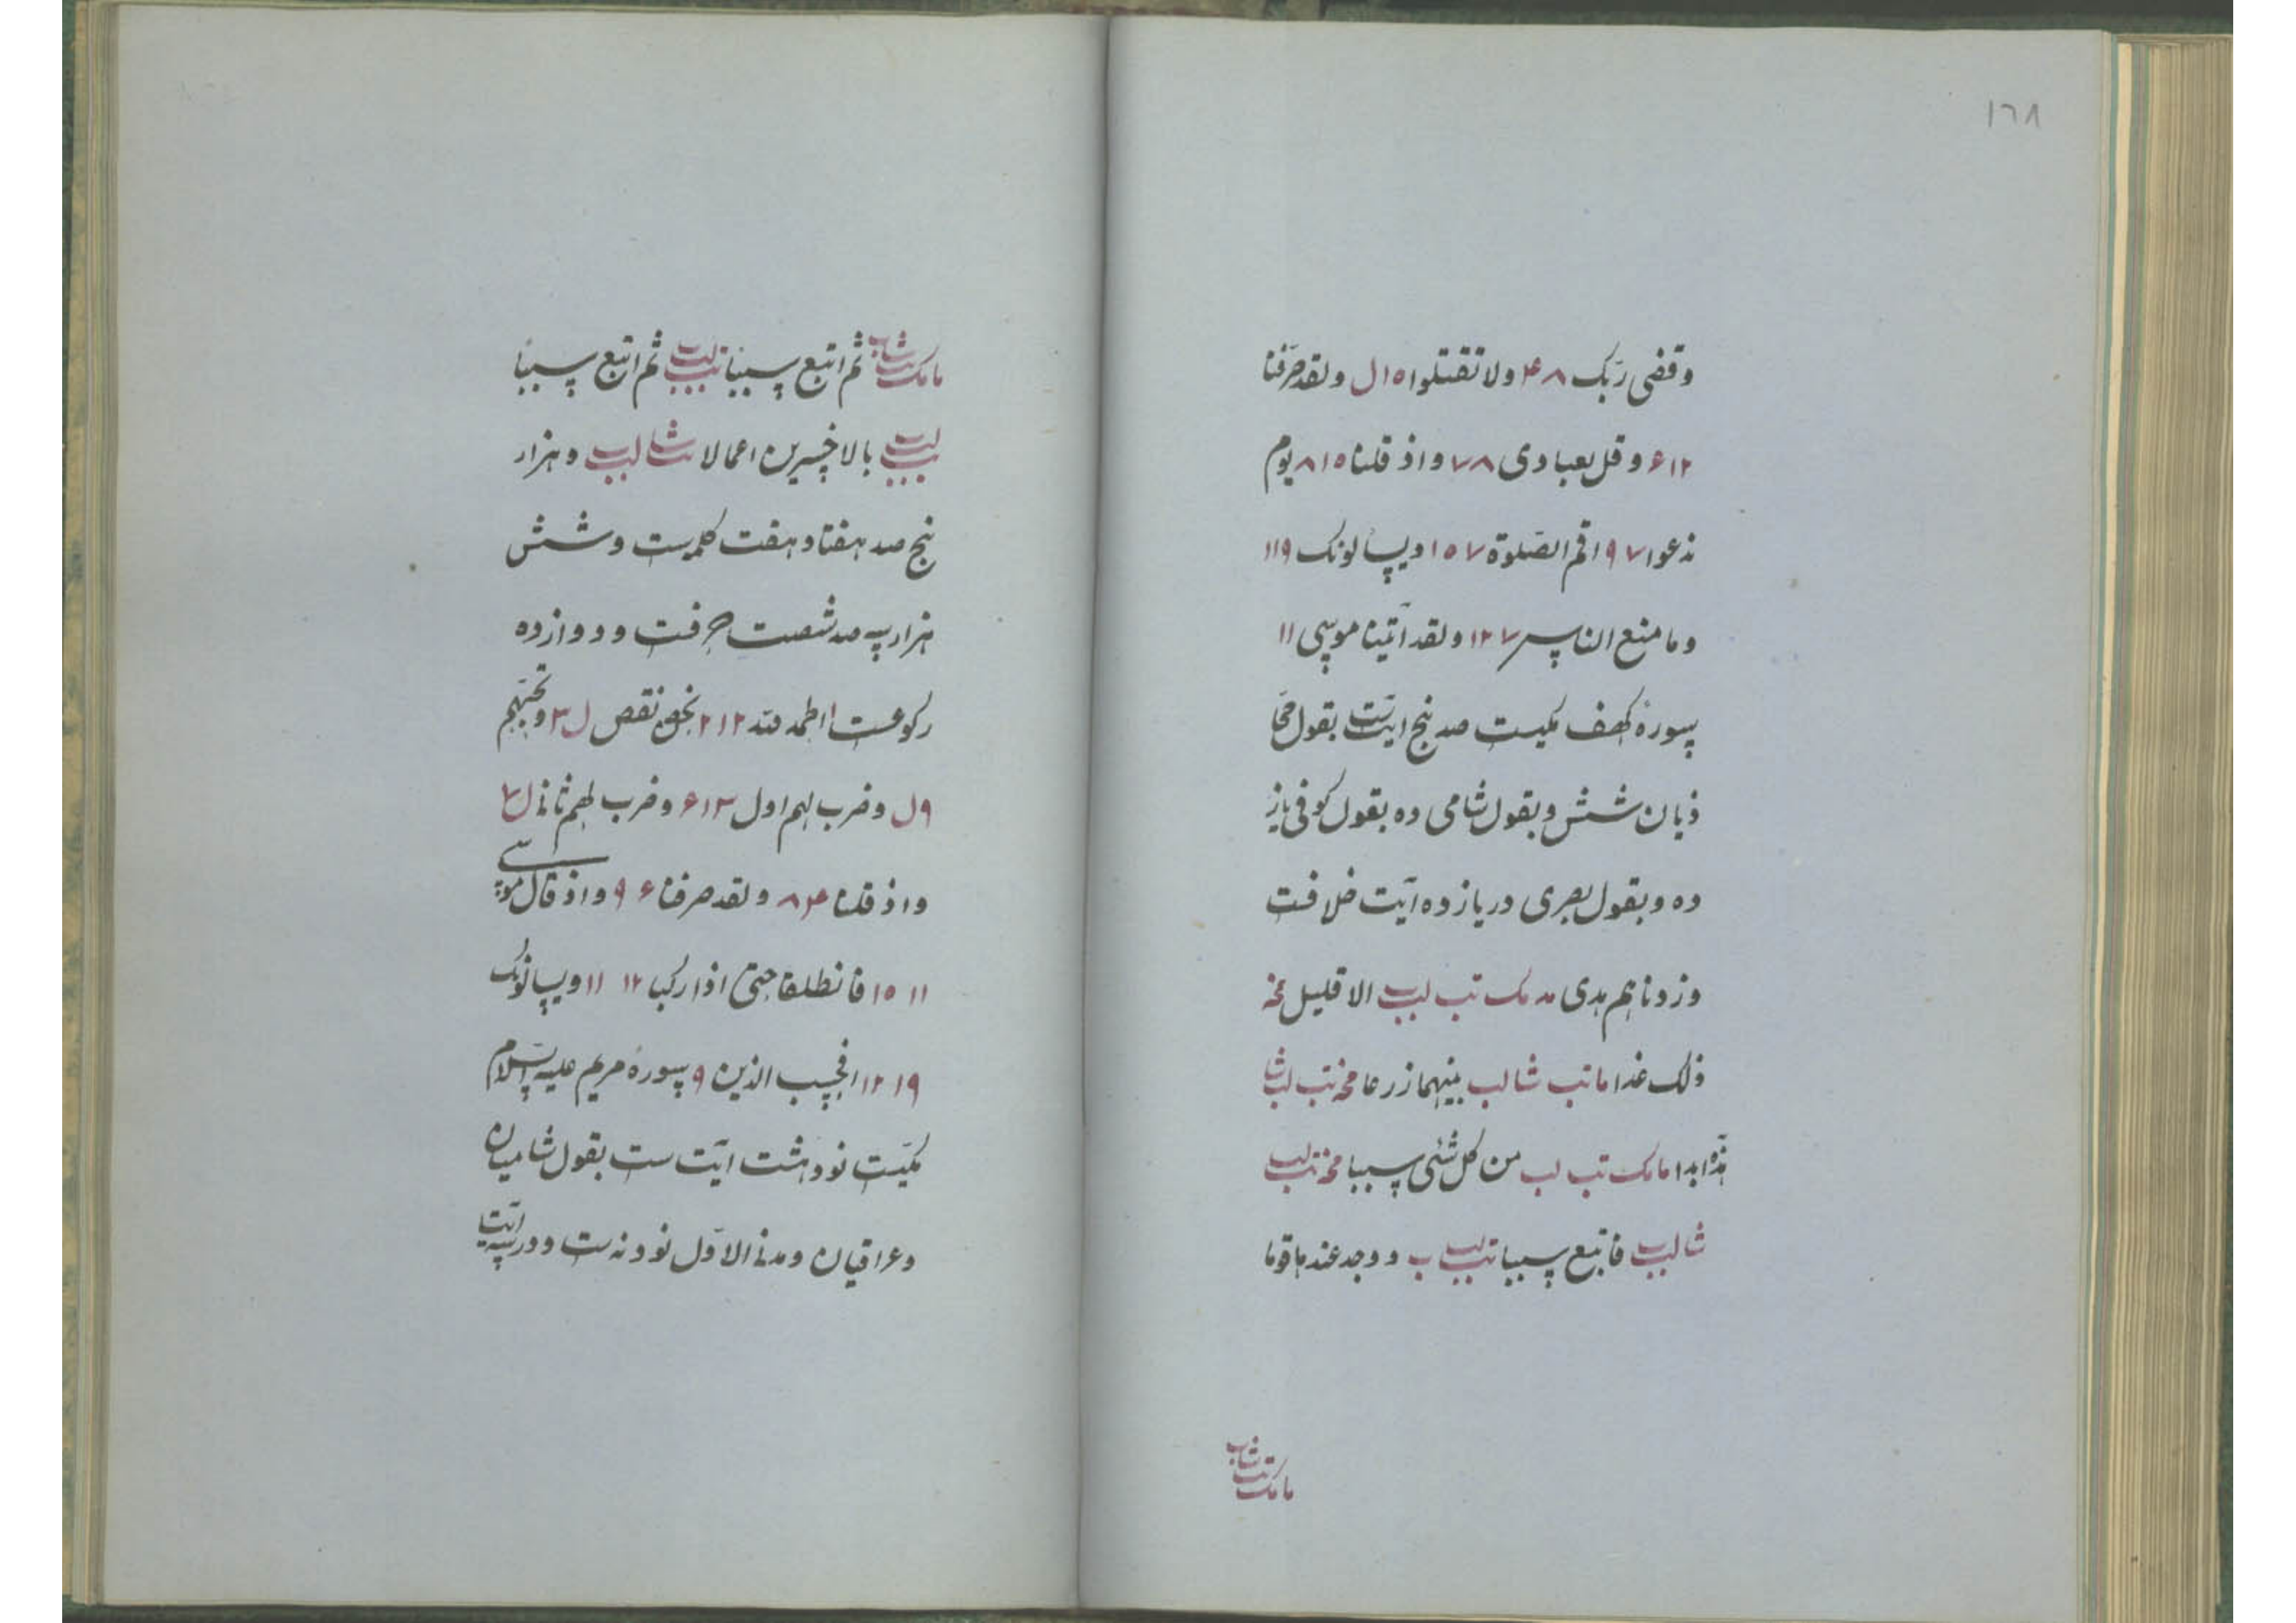 ١٦٨
وقضی ربک ٨ ۴ ولا تقتلوا ١٥ ل ولقد صرفنا
١٢ ۶ وقل لعبادی ٧٨ واذ قلنا ٨١٥ یوم
ندعوا ٩٧ اقم الصلوة ١٥٧ ویسالونک ١١٩
وما منع الناس ١٢٧ ولقد آتینا موسی ١١
سورهٔ کهف مکیست صد پنج ایتست بقول حجا
ذیان شش و بقول شامی وه بقول کوفی یاز
ده و بقول بصری در یازده آیت خلافت
وزدناهم هدی مد مک تب لب الا قلیل مخه
ذلک غدا ما تب شا لب بینهما زرعا مخه تب لب شا
هذه ابدا ما مک تب لب من کل شئی سببا مخه تب لب
شا لب فاتبع سببا تب لب ب ووجد عندها قوما
ما مک تب شا ب
ما مک تب شا ب ثم اتبع سببا تب لب ثم اتبع سببا
تب لب بالاخسرین اعمالا تب شا لب و هزار
پنج صد هفتاد هفت کلمیست و شش
هزار سه صد شصت حرفست و دوازده
رکوعست الحمد لله ١٢ ٢ نحن نقص ل ٣ وتحسبهم
٩ ل وضرب لهم اول ١٣ ۶ وضرب لهم ثانی ل ۴
واذ قلنا ٨۴ ولقد صرفنا ۶ ٩ واذ قال موسی
١١ ١٥ فانطلقا حتی اذا رکبا ١٢ ١١ ویسالونک
١٩ ١٢ افحسب الذین ٩ سورهٔ مریم علیه السلام
مکیست نود هشت ایت ست بقول شامیان
وعراقیان و مدنی الاول نود نه ست و در سه ایت